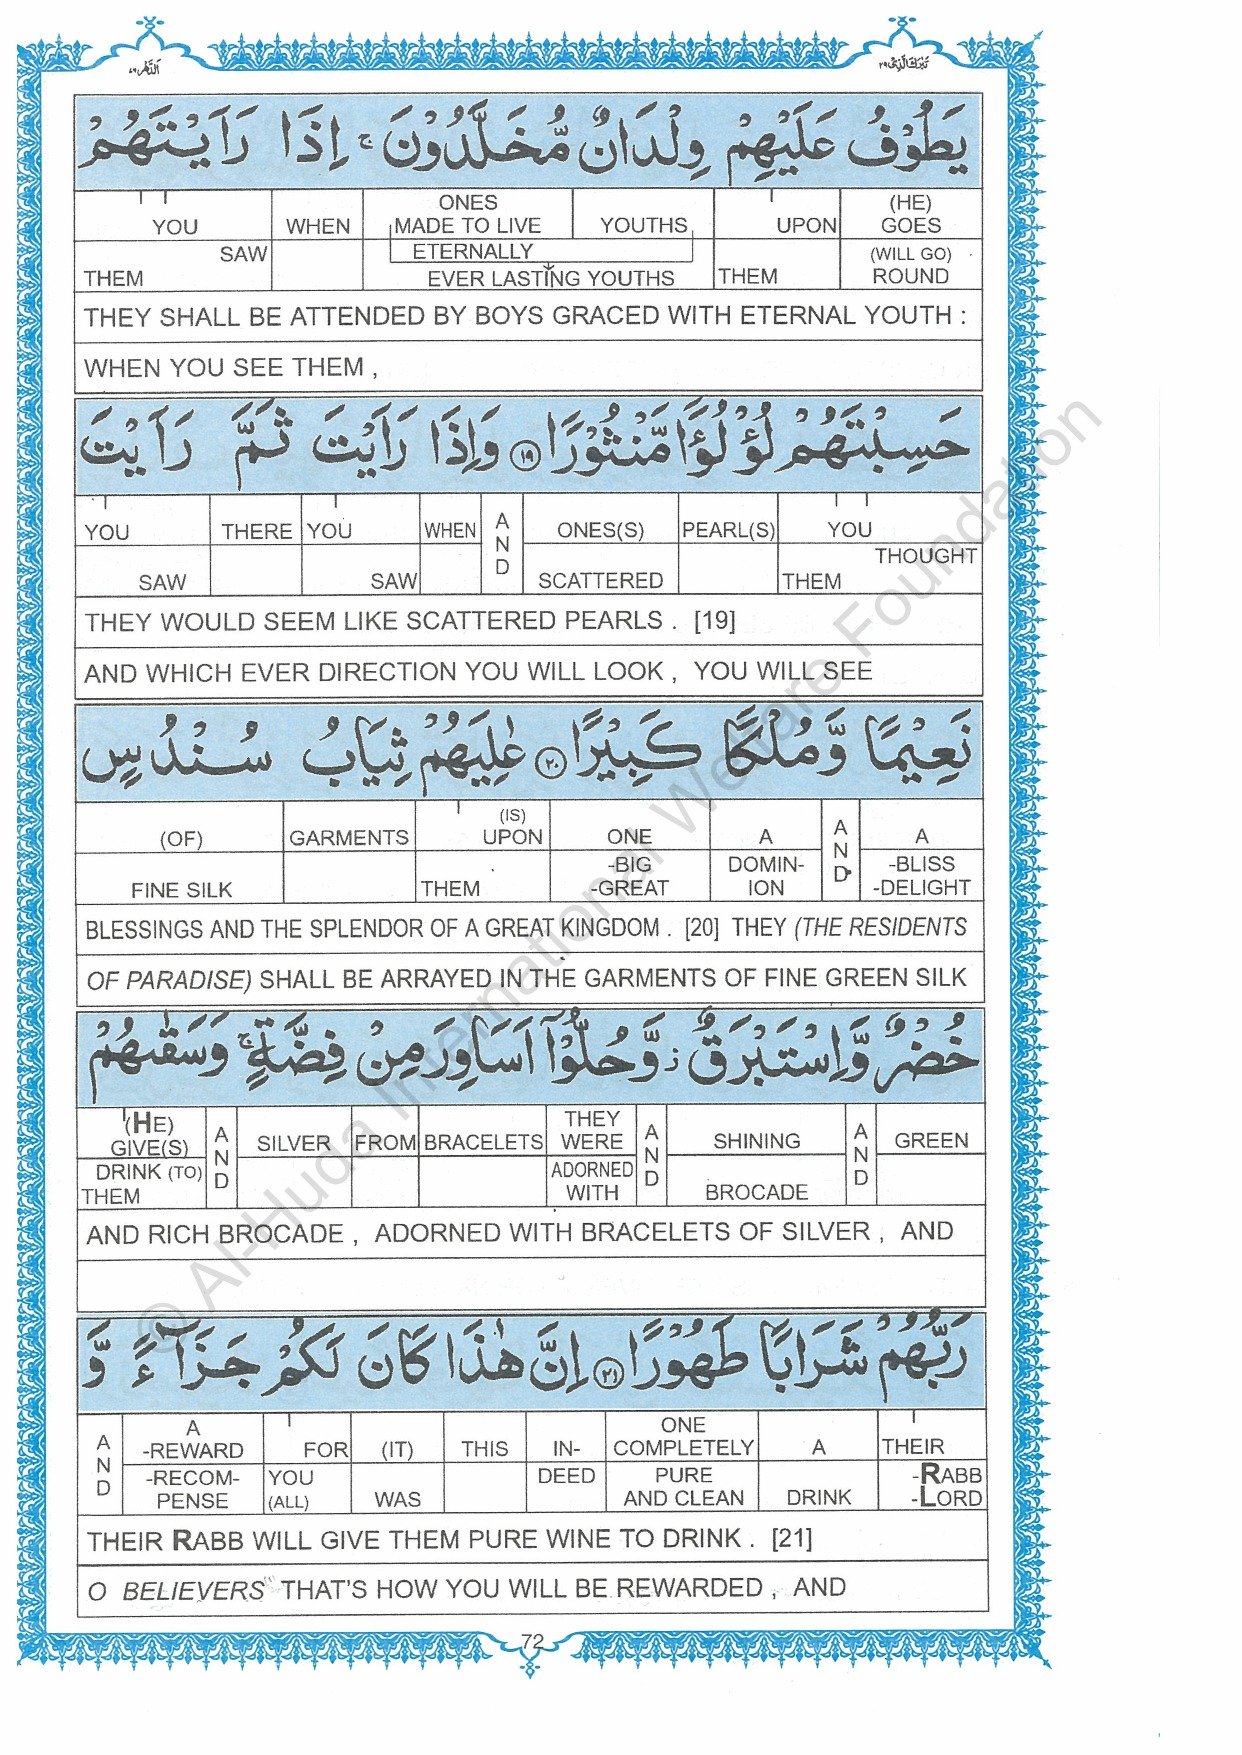 اَلدَّهْر ٧٦
تَبٰرَكَ الَّذِىْ ٢٩
يَطُوْفُ عَلَيْهِمْ وِلْدَانٌ مُّخَلَّدُوْنَ ۚ اِذَا رَاَيْتَهُمْ
(HE) GOES (WILL GO) ROUND
UPON THEM
YOUTHS
ONES MADE TO LIVE ETERNALLY
EVER LASTING YOUTHS
WHEN
YOU SAW THEM
THEY SHALL BE ATTENDED BY BOYS GRACED WITH ETERNAL YOUTH :
WHEN YOU SEE THEM ,
حَسِبْتَهُمْ لُؤْلُؤًا مَّنْثُوْرًا ۱۹ وَاِذَا رَاَيْتَ ثَمَّ رَاَيْتَ
YOU THOUGHT THEM
PEARL(S)
ONES(S) SCATTERED
AND
WHEN
YOU SAW
THERE
YOU SAW
THEY WOULD SEEM LIKE SCATTERED PEARLS . [19]
AND WHICH EVER DIRECTION YOU WILL LOOK , YOU WILL SEE
نَعِيْمًا وَّمُلْكًا كَبِيْرًا ۲۰ عٰلِيَهُمْ ثِيَابُ سُنْدُسٍ
A -BLISS -DELIGHT
AND
A DOMIN-ION
ONE -BIG -GREAT
(IS) UPON THEM
GARMENTS
(OF) FINE SILK
BLESSINGS AND THE SPLENDOR OF A GREAT KINGDOM . [20] THEY (THE RESIDENTS
OF PARADISE) SHALL BE ARRAYED IN THE GARMENTS OF FINE GREEN SILK
خُضْرٌ وَّاِسْتَبْرَقٌ ز وَّحُلُّوْۤا اَسَاوِرَ مِنْ فِضَّةٍ ۚ وَسَقٰىهُمْ
GREEN
AND
SHINING BROCADE
AND
THEY WERE ADORNED WITH
BRACELETS
FROM
SILVER
AND
(HE) GIVE(S) DRINK (TO) THEM
AND RICH BROCADE , ADORNED WITH BRACELETS OF SILVER , AND
رَبُّهُمْ شَرَابًا طَهُوْرًا ۲۱ اِنَّ هٰذَا كَانَ لَكُمْ جَزَآءً وَّ
THEIR -RABB -LORD
A DRINK
ONE COMPLETELY PURE AND CLEAN
IN-DEED
THIS
(IT) WAS
FOR YOU (ALL)
A -REWARD -RECOM-PENSE
AND
THEIR RABB WILL GIVE THEM PURE WINE TO DRINK . [21]
O BELIEVERS THAT'S HOW YOU WILL BE REWARDED , AND
72
© Al-Huda International Welfare Foundation